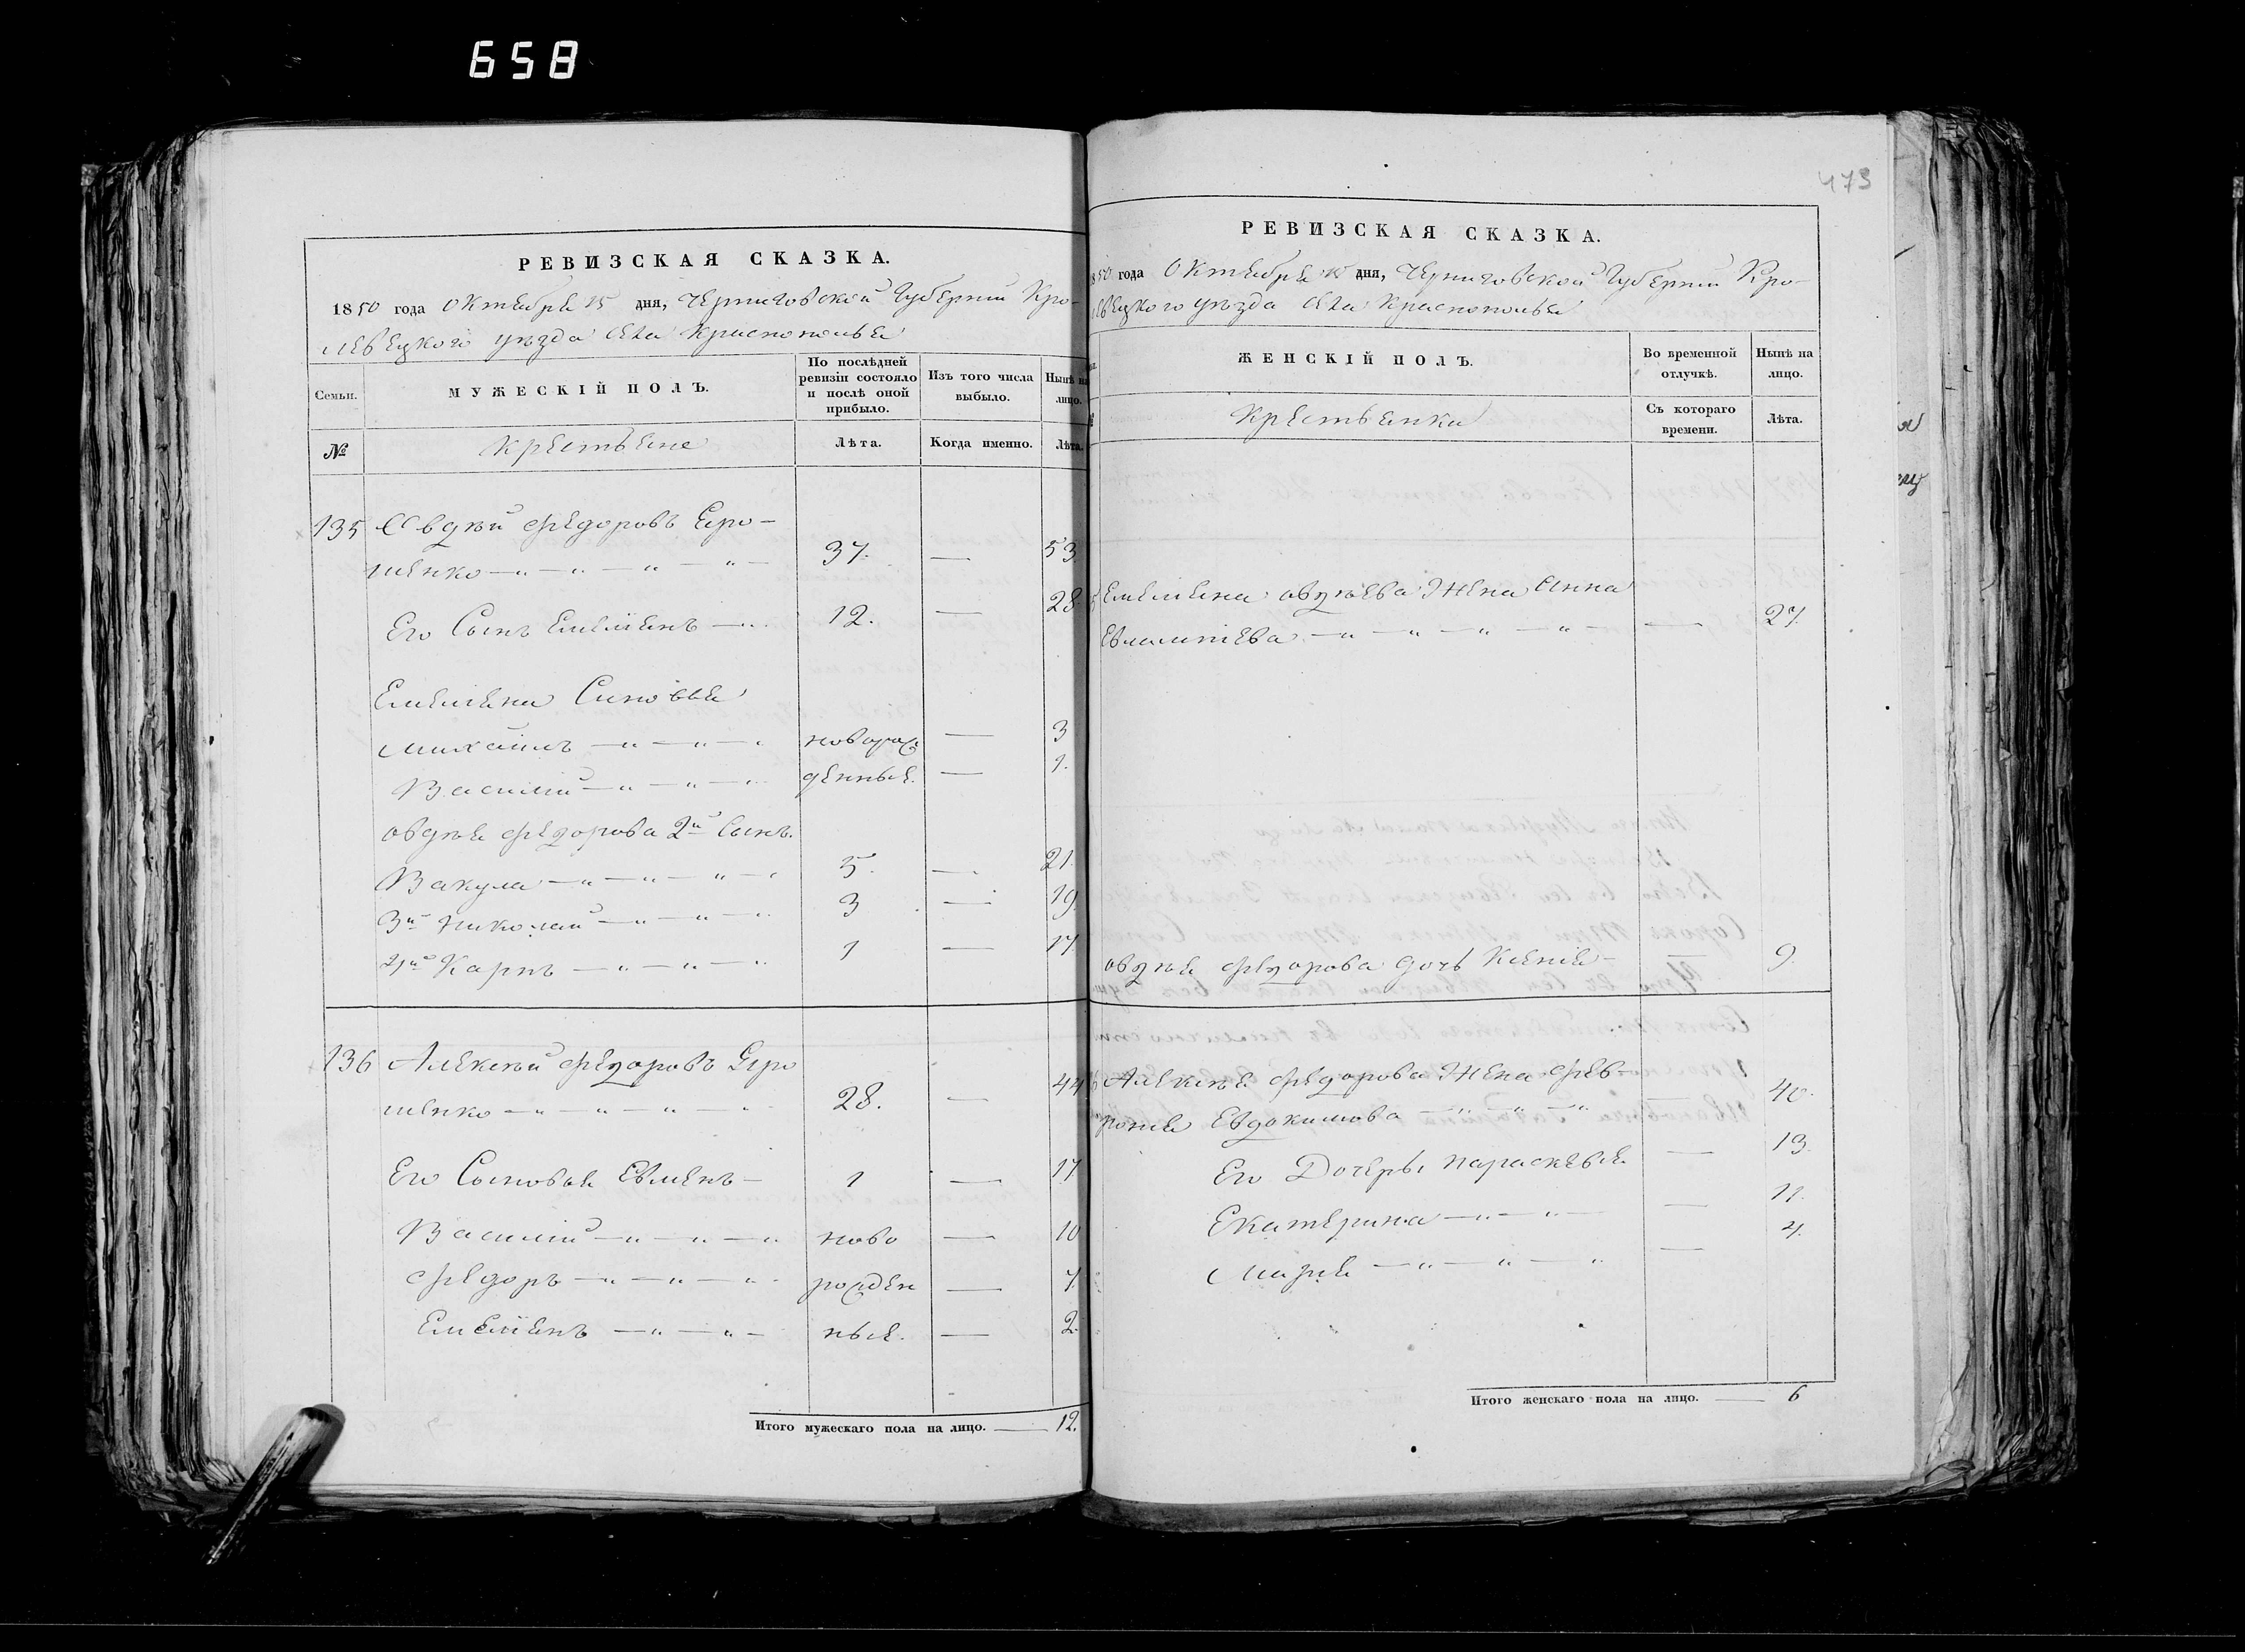 658
473
РЕВИЗСКАЯ СКАЗКА.
1850 года Октября 15 дня, Черниговской Губерніи Кро-
левецкого уѣзда села Краснополья
Семьи.
МУЖЕСКІЙ ПОЛЪ.
По послѣдней ревизіи состояло и послѣ оной прибыло.
Изъ того числа выбыло.
Нынѣ на лицо.
№
Крестьяне
Лѣта.
Когда именно.
Лѣта.
135 Овдѣй Федоровъ Еро-
шенко 37. — 53.
Его Сынъ Емеліянъ 12. — 28
Емеліяна Синовья
Михаилъ новорож — 3
Василій денные. — 1.
Овдѣя Федорова 2й Сынъ.
Вакула 5. — 21.
3й Николай 3 — 19.
4й Карпъ 1 — 17.
136 Алексѣй Федоровъ Еро
шенко 28. — 44
Его Сыновья Евменъ 1 — 17
Василій ново — 10
Федоръ рожден — 7.
Емеліянъ ные. — 2.
Итого мужескаго пола на лицо. — 12.
РЕВИЗСКАЯ СКАЗКА.
1850 года Октября 15 дня, Черниговской Губерніи Кро-
левецкого уѣзда села Краснополья
ЖЕНСКІЙ ПОЛЪ.
Во временной отлучкѣ.
Нынѣ на лицо.
Крестьянки
Съ котораго времени.
Лѣта.
Емеліяна Овдѣева Жена Анна
Евлампіева — 27.
Овдѣя Федорова дочь Ксенія — 9.
Алексѣя Федорова Жена Фев-
ронія Евдокимова — 40.
Его Дочеры Параскевія — 13.
Екатерина — 11.
Марія — 4.
Итого женскаго пола на лицо. — 6